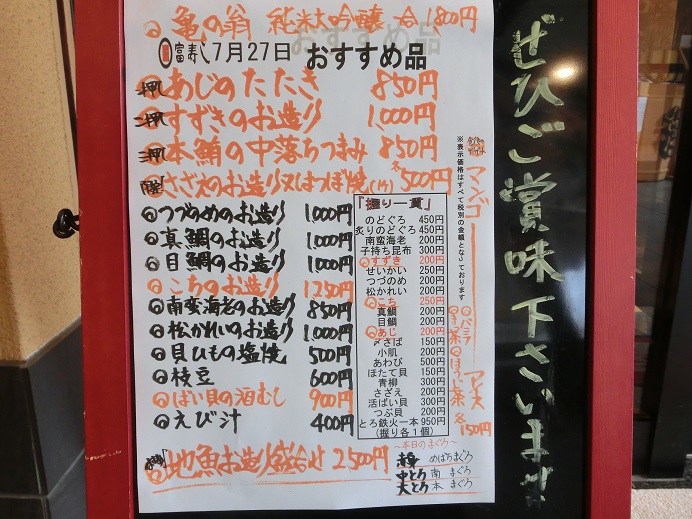 亀の翁 純米大吟醸 合1,800円
富寿し7月27日 おすすめ品
一押 あじのたたき 850円
二押 すずきのお造り 1,000円
三押 本鮪の中落ちつまみ 850円
さざえのお造り又はつぼ焼(1ケ) 各500円
つづのめのお造り 1,000円
真鯛のお造り 1,000円
目鯛のお造り 1,000円
こちのお造り 1250円
南蛮海老のお造り 850円
松かれいのお造り 1,000円
貝ひもの塩焼 500円
枝豆 600円
ばい貝の酒むし 900円
えび汁 400円
地魚お造り盛合せ 2500円
「握り一貫」
のどぐろ 450円
炙りのどぐろ 450円
南蛮海老 200円
子持ち昆布 300円
すずき 200円
せいかい 250円
つづのめ 200円
松かれい 200円
こち 250円
真鯛 200円
目鯛 200円
あじ 200円
〆さば 150円
小肌 200円
あわび 500円
ほたて貝 150円
青柳 300円
さざえ 200円
活ばい貝 300円
つぶ貝 200円
とろ鉄火一本 950円
(握り各1個)
~本日のまぐろ~
赤身 めばちまぐろ
中とろ 南まぐろ
大とろ 本まぐろ
※表示価格はすべて税別の金額となっております
マンゴー
バニラ
抹茶
ほうじ茶
アイス
各150円
ぜひご賞味下さいませ